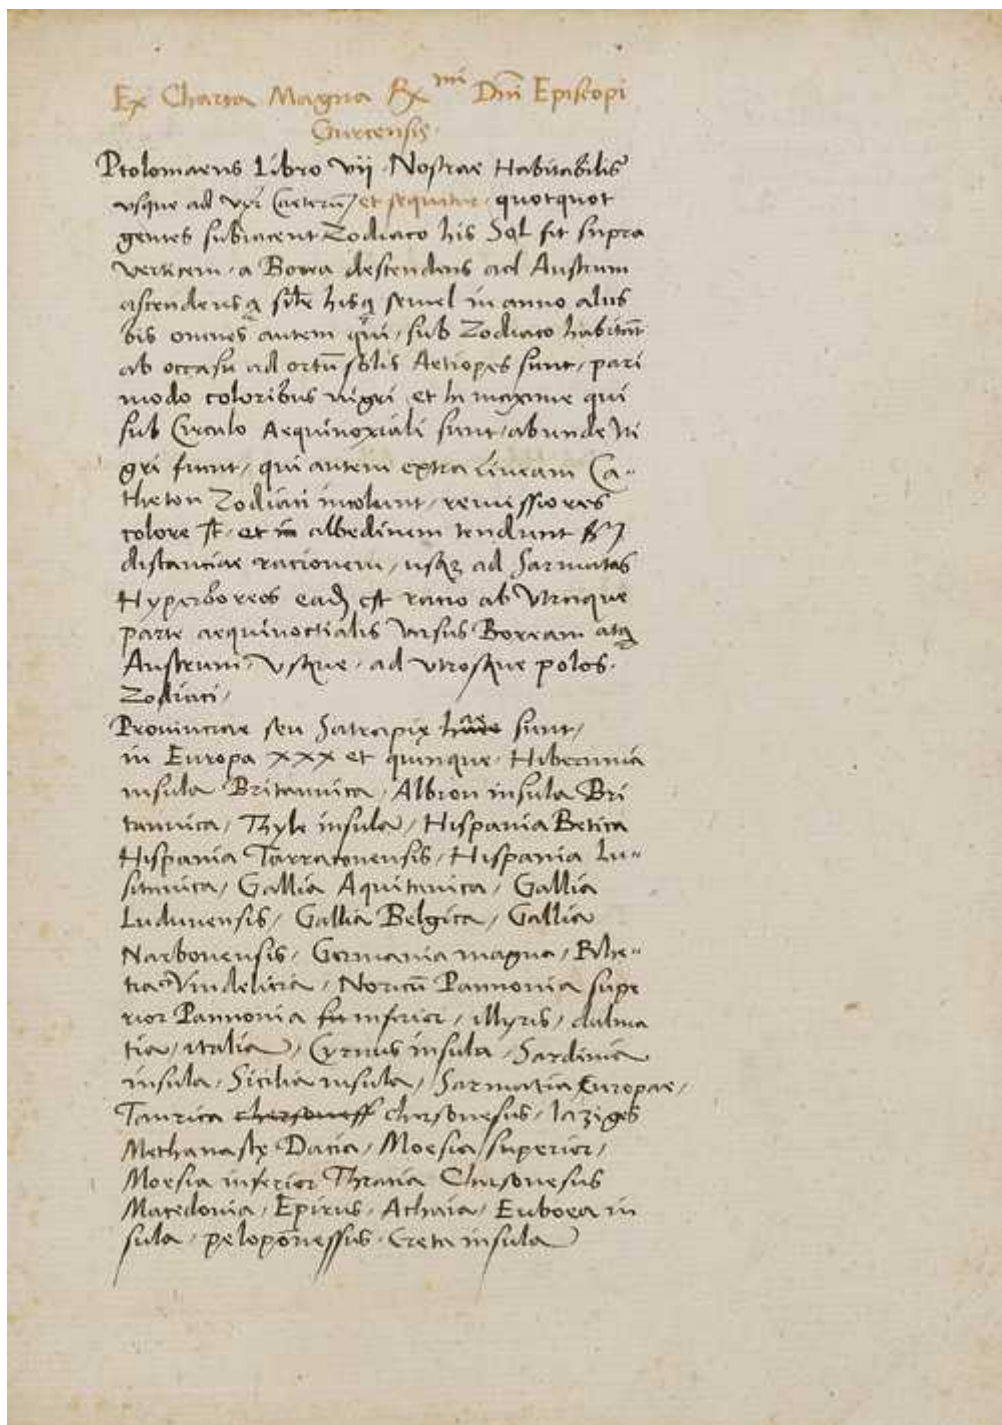 Ex Charta Magna Rx mi Dni Episcopi
Gurcensis.
Ptolomaeus Libro vij Nostrae Habitabilis
usque ad Caeterum et sequitur quotquot
gentes subiacent Zodiaco his Sol fit supra
verticem, a Borea descendens ad Austrum
ascendensq silr hisq semel in anno aliis
bis omnes autem qui, sub Zodiaco habitat
ab occasu ad ortu solis Aetiopes sunt, pari
modo coloribus nigri et hi maxime qui
sub Circulo Aequinoxiali sunt, abunde Ni
gri sunt, qui autem extra lineam Ca-
theton Zodiaci incolunt, remissiores
colore st, et in albedinem tendunt
distanciae racionem, usq ad Sarmatas
Hyperboreos ead est racio ab Utraque
parte aequinoctialis versus Boream atq
Austrum, Usque, ad utrosque polos.
Zodiaci,
Prouinciae seu Satrapię hae sunt,
in Europa xxx et quinque. Hibernnia
insula Britannica, Albion insula Bri
tannica, Thyle insula, Hispania Betica
Hispania Tarraconensis, Hispania Lu-
sitanica, Gallia Aquitanica, Gallia
Ludunensis, Gallia Belgica, Gallia
Narbonensis, Germania magna, Rhe-
tia Vindelicia, Noricu Pannonia supe
rior Pannonia inferior, illyris, dalma
tia, italia, Cyrnus insula, Sardinia
insula, Sicilia insula, Sarmatia Europae,
Taurica chersoness chersonesus, Iaziges
Methanastę Dacia, Moesia superior,
Moesia inferior Thracia Chersonesus
Macedonia, Epirus, Achaia, Euboea in
sula, peloponessus. Creta insula